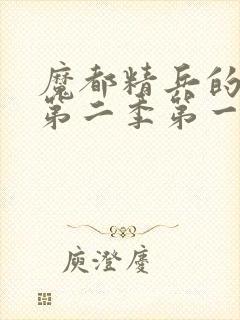 魔都精兵的
第二季第一
庾澄庆